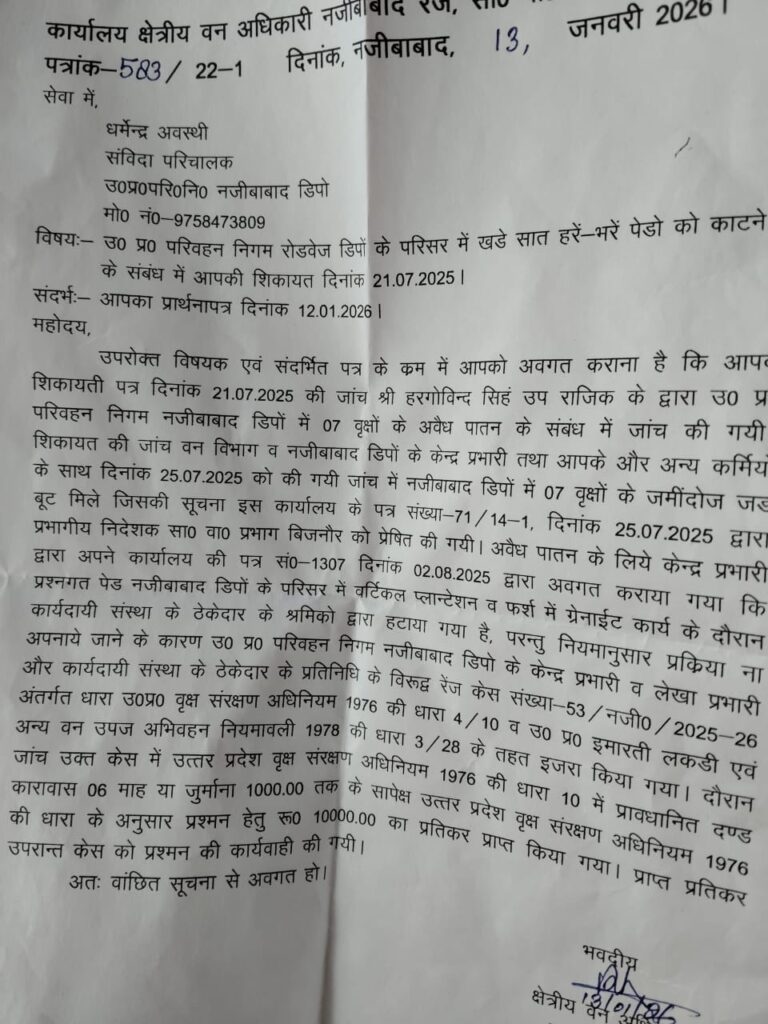 कार्यालय क्षेत्रीय वन अधिकारी नजीबाबाद रेंज, सा०
पत्रांक–583/ 22–1 दिनांक, नजीबाबाद, 13, जनवरी 2026।
सेवा में,
धर्मेन्द्र अवस्थी
संविदा परिचालक
उ0प्र0परि0नि0 नजीबाबाद डिपो
मो0 नं0–9758473809
विषयः– उ0 प्र0 परिवहन निगम रोडवेज डिपों के परिसर में खडे सात हरें–भरें पेडो को काटने
के संबंध में आपकी शिकायत दिनांक 21.07.2025।
संदर्भः– आपका प्रार्थनापत्र दिनांक 12.01.2026।
महोदय,
उपरोक्त विषयक एवं संदर्भित पत्र के क्रम में आपको अवगत कराना है कि
शिकायती पत्र दिनांक 21.07.2025 की जांच श्री हरगोविन्द सिहं उप राजिक के द्वारा उ0 प्र
परिवहन निगम नजीबाबाद डिपों में 07 वृक्षों के अवैध पातन के संबंध में जांच की गयी
शिकायत की जांच वन विभाग व नजीबाबाद डिपों के केन्द्र प्रभारी तथा आपके और अन्य
के साथ दिनांक 25.07.2025 को की गयी जांच में नजीबाबाद डिपों में 07 वृक्षों के जमींदोज जड
बूट मिले जिसकी सूचना इस कार्यालय के पत्र संख्या–71/14–1, दिनांक 25.07.2025 द्वारा
प्रभागीय निदेशक सा0 वा0 प्रभाग बिजनौर को प्रेषित की गयी। अवैध पातन के लिये केन्द्र प्रभारी
द्वारा अपने कार्यालय की पत्र सं0–1307 दिनांक 02.08.2025 द्वारा अवगत कराया गया कि
प्रश्नगत पेड नजीबाबाद डिपों के परिसर में वर्टिकल प्लान्टेशन व फर्श में ग्रेनाईट कार्य के दौरान
कार्यदायी संस्था के ठेकेदार के श्रमिको द्वारा हटाया गया है, परन्तु नियमानुसार प्रक्रिया ना
अपनाये जाने के कारण उ0 प्र0 परिवहन निगम नजीबाबाद डिपो के केन्द्र प्रभारी व लेखा प्रभारी
और कार्यदायी संस्था के ठेकेदार के प्रतिनिधि के विरूद्व रेंज केस संख्या–53/नजी0/2025–26
अंतर्गत धारा उ0प्र0 वृक्ष संरक्षण अधिनियम 1976 की धारा 4/10 व उ0 प्र0 इमारती लकडी एवं
अन्य वन उपज अभिवहन नियमावली 1978 की धारा 3/28 के तहत इजरा किया गया। दौरान
जांच उक्त केस में उत्तर प्रदेश वृक्ष संरक्षण अधिनियम 1976 की धारा 10 में प्रावधानित दण्ड
कारावास 06 माह या जुर्माना 1000.00 तक के सापेक्ष उत्तर प्रदेश वृक्ष संरक्षण अधिनियम 1976
की धारा के अनुसार प्रश्मन हेतु रू0 10000.00 का प्रतिकर प्राप्त किया गया। प्राप्त प्रतिकर
उपरान्त केस को प्रश्मन की कार्यवाही की गयी।
अतः वांछित सूचना से अवगत हो।
भवदीय
13/01/26
क्षेत्रीय वन